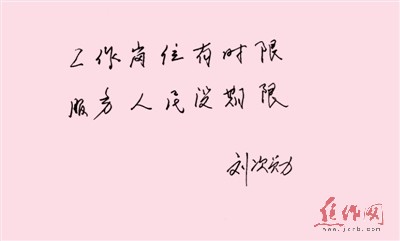 工作岗位有时限
服务人民没期限
刘次勋
焦作网
www.jzrb.com